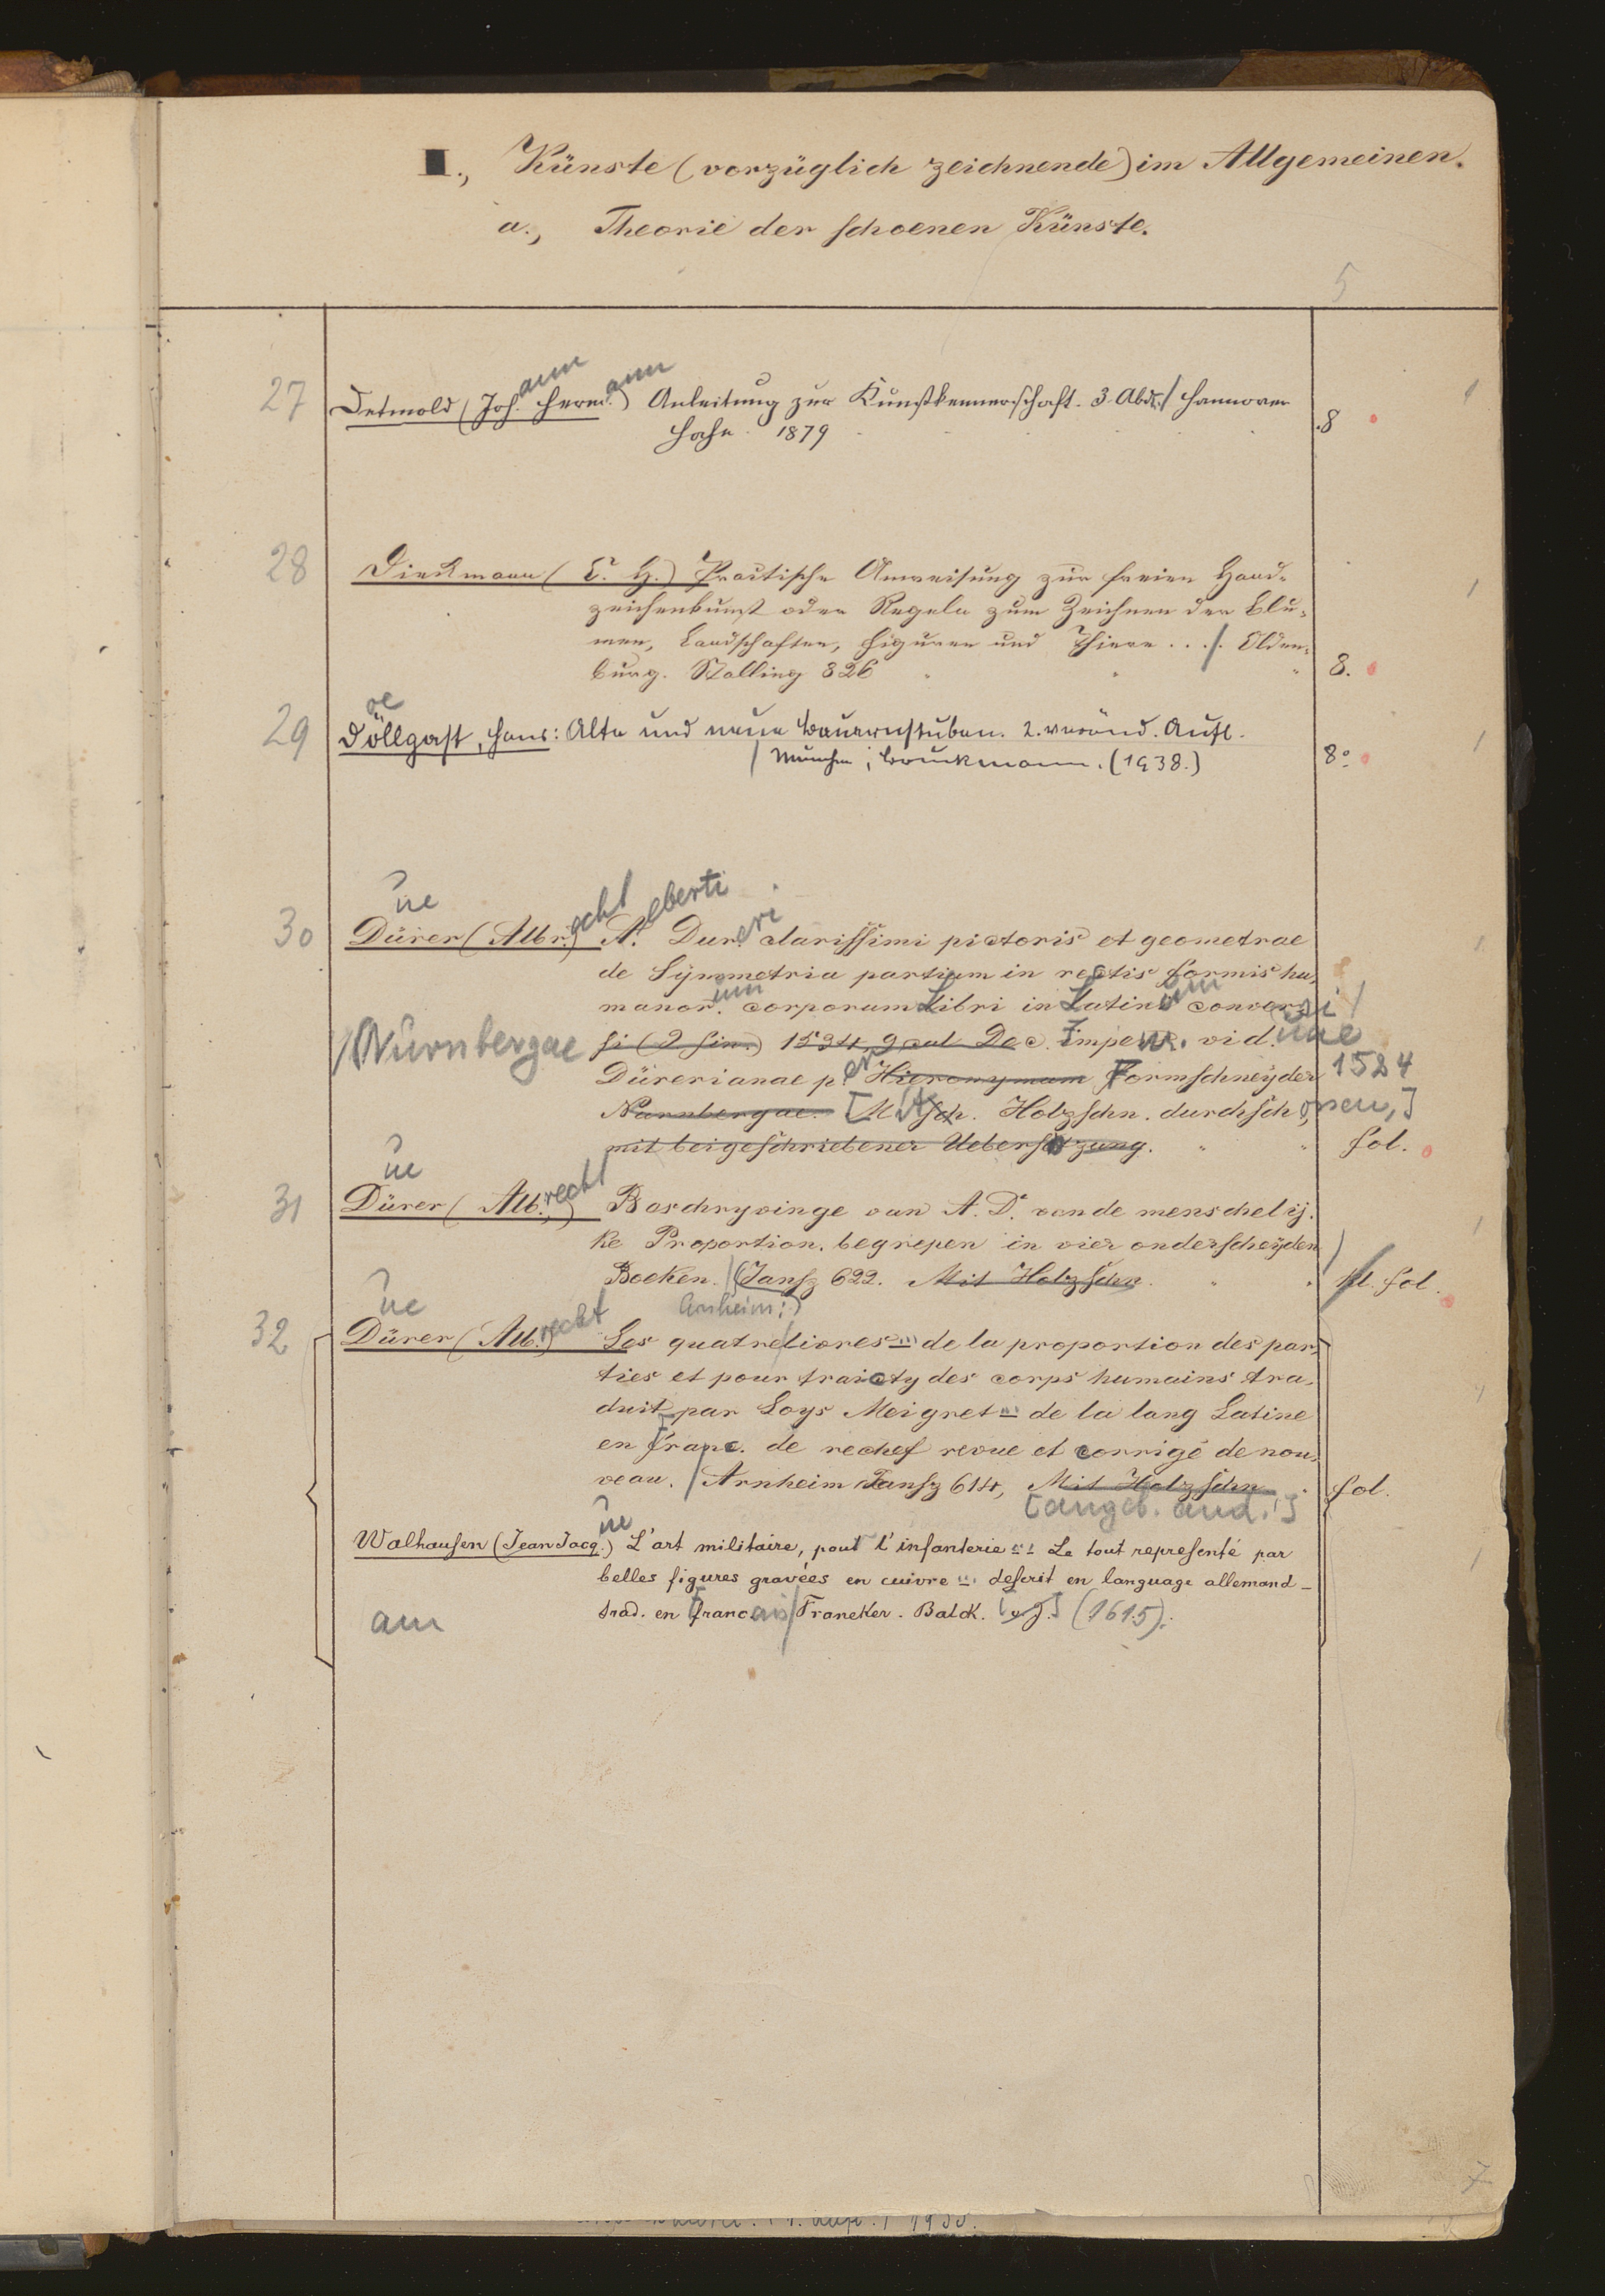 II., Künste (vorzüglich zeichnende) im Allgemeinen.
a., Theorie der schoenen Künste.
5
27 Detmold (Joh.ann Herm.ann) Anleitung zur Kunstkennerschaft. 3. Abdr./ Hannover
Hahn. 1879 8
28 Dieckmann (C. H.) Practische Anweisung zur freien Hand-
zeichenkunst oder Regeln zum Zeichnen der Blu-
men, Landschaften, Figuren und Thiere . . ./. Olden-
burg. Stalling 826 8.
oe
29 Döllgast, Hans: Alte und neue Bauernstuben. 2. veränd. Aufl.
/ München; Bruckmann. (1938.) 8°
ue
30 Dürer (Albr.echt) A.lberti Dur.eri clarissimi pictoris et geometrae
de Symmetria partium in rectis formis hu-
manor.um corporum Libri in Latinum conver si /
/ Nurnbergae si (2 sin.) 1534, 9 cal Dec. Impens. vid. uae
Dürerianae p.er Hieronymum Formschneyder 1534
Narnbergae. [Mit sch. Holzschn. durchschossen,]
mit beigeschriebener Uebersetzung. fol.
ue
31 Dürer (Alb.recht) Beschryvinge van A. D. van de menschelij-
ke Proportion. begrepen in vier onderscheyden
Boeken. / (Jansz 622. Mit Holzschn. kl. fol.
Arnheim:)
ue
32 Dürer (Alb.recht) Les quatre livres ... de la proportion des par-
ties et pour traicty des corps humains tra-
duit par Loys Meigret ... de la lang Latine
en franc. de rechef revue et corrigé de nou-
veau. / Arnheim Jansz 614, Mit Holzschn. fol.
[angeb. and.:]
ue
Walhausen (Jean Jacq.) L'art militaire, pour l'infanterie ... Le tout representé par
belles figures gravées en cuivre ... descrit en language allemand -
trad. en francais / Franeker. Balck. [o. J.] (1615).
am
7